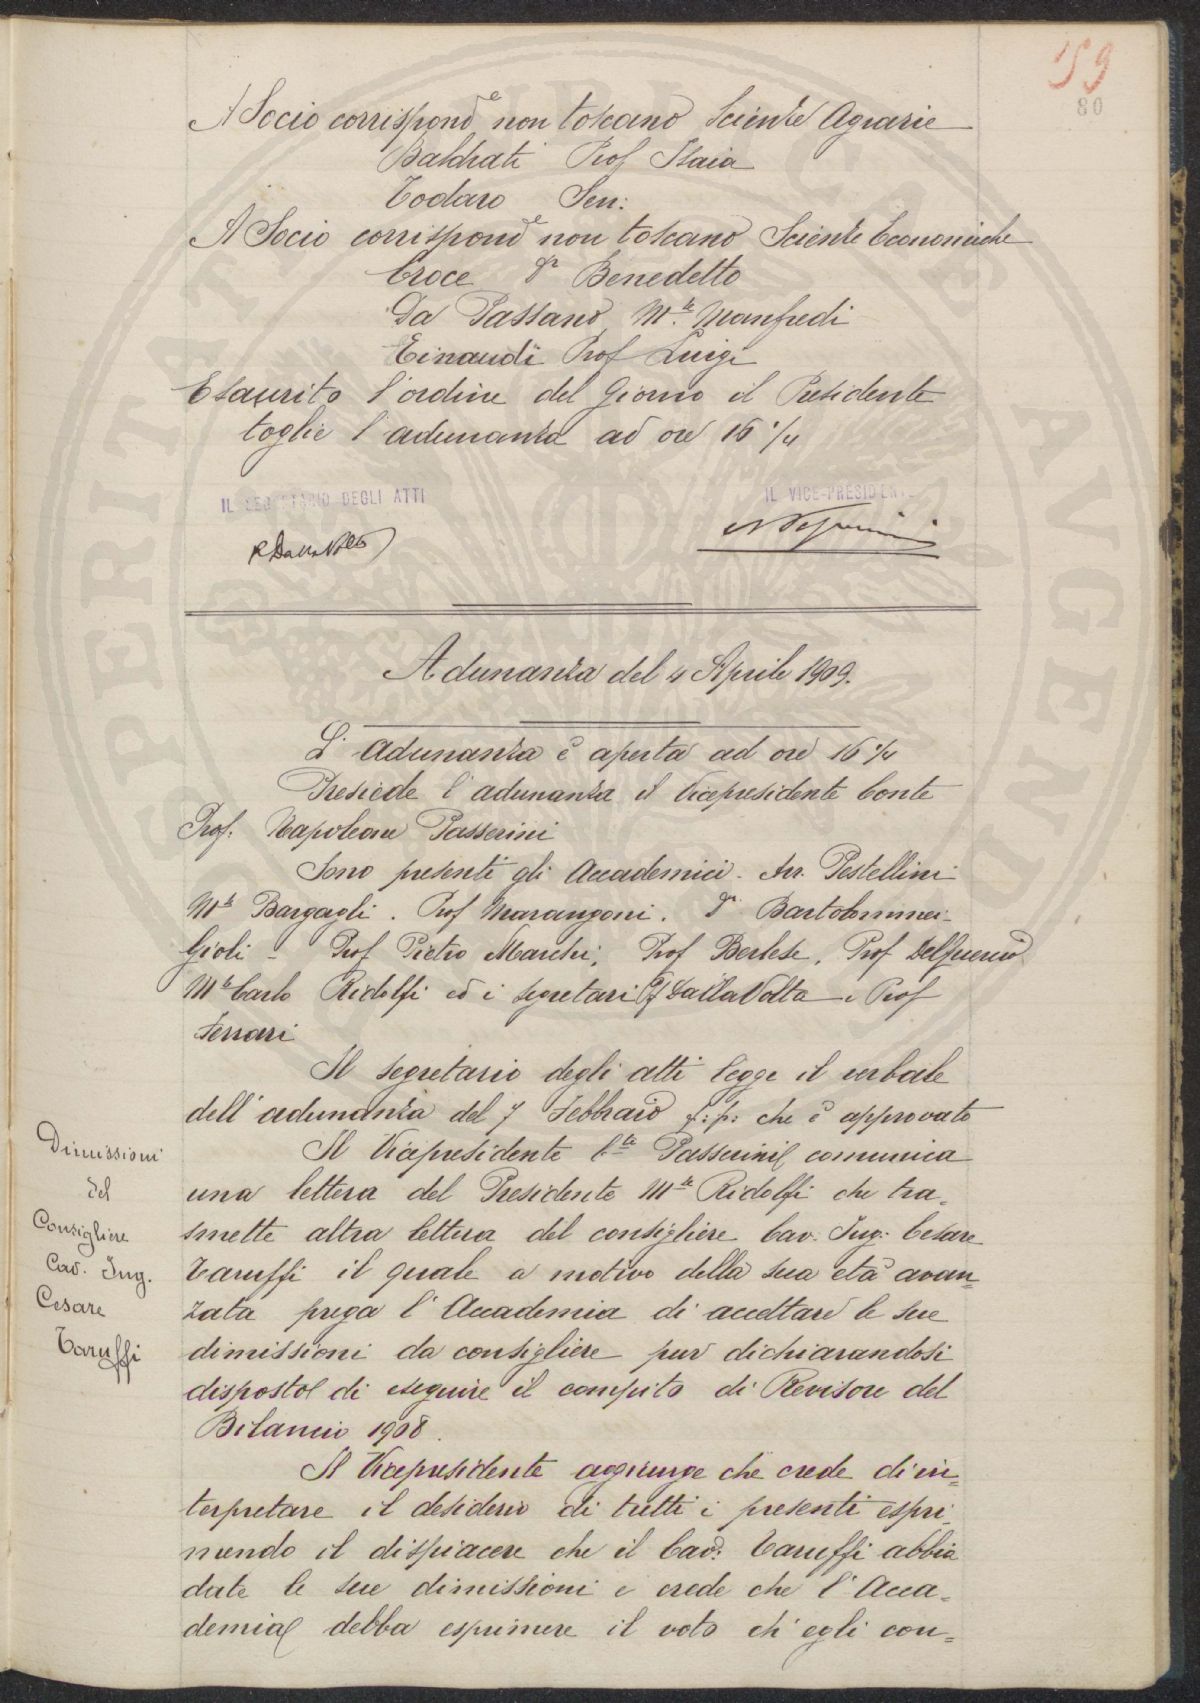 159
80
A Socio corrispond.e non toscano Scienze Agrarie
Baldrati Prof Isaia
Todaro Sen:
A Socio corrispond.e non toscano Scienze Economiche
Croce Dr Benedetto
Da Passano M.se Manfredi
Einaudi Prof Luigi
Esaurito l'ordine del Giorno il Presidente
toglie l'adunanza ad ore 16 1/4
IL SEGRETARIO DEGLI ATTI
IL VICE-PRESIDENTE
R Dalla Volta
N Passerini
Adunanza del 4 Aprile 1909.
L'adunanza è aperta ad ore 16 1/4
Presiede l'adunanza il Vicepresidente Conte
Prof. Napoleone Passerini
Sono presenti gli Accademici. Avv. Pestellini
M.se Bargagli. Prof Marangoni. Dr Bartolommei-
Gioli - Prof Pietro Marchi, Prof Berlese, Prof Del Guercio
M.se Carlo Ridolfi ed i segretari Pf Dalla Volta e Prof
Ferrari
Il segretario degli atti legge il verbale
dell'adunanza del 7 Febbraio p:p: che è approvato
Dimissioni
del
Consigliere
Cav. Ing.
Cesare
Taruffi
Il Vicepresidente C.te Passerini comunica
una lettera del Presidente M.se Ridolfi che tra=
smette altra lettera del consigliere Cav. Ing: Cesare
Taruffi il quale a motivo della sua età avan=
zata prega l'Accademia di accettare le sue
dimissioni da consigliere pur dichiarandosi
disposto di eseguire il compito di Revisore del
Bilancio 1908.
Il Vicepresidente aggiunge che crede d'in=
terpretare il desiderio di tutti i presenti espri=
mendo il dispiacere che il Cav: Taruffi abbia
date le sue dimissioni e crede che l'Acca=
demia debba esprimere il voto ch'egli con=